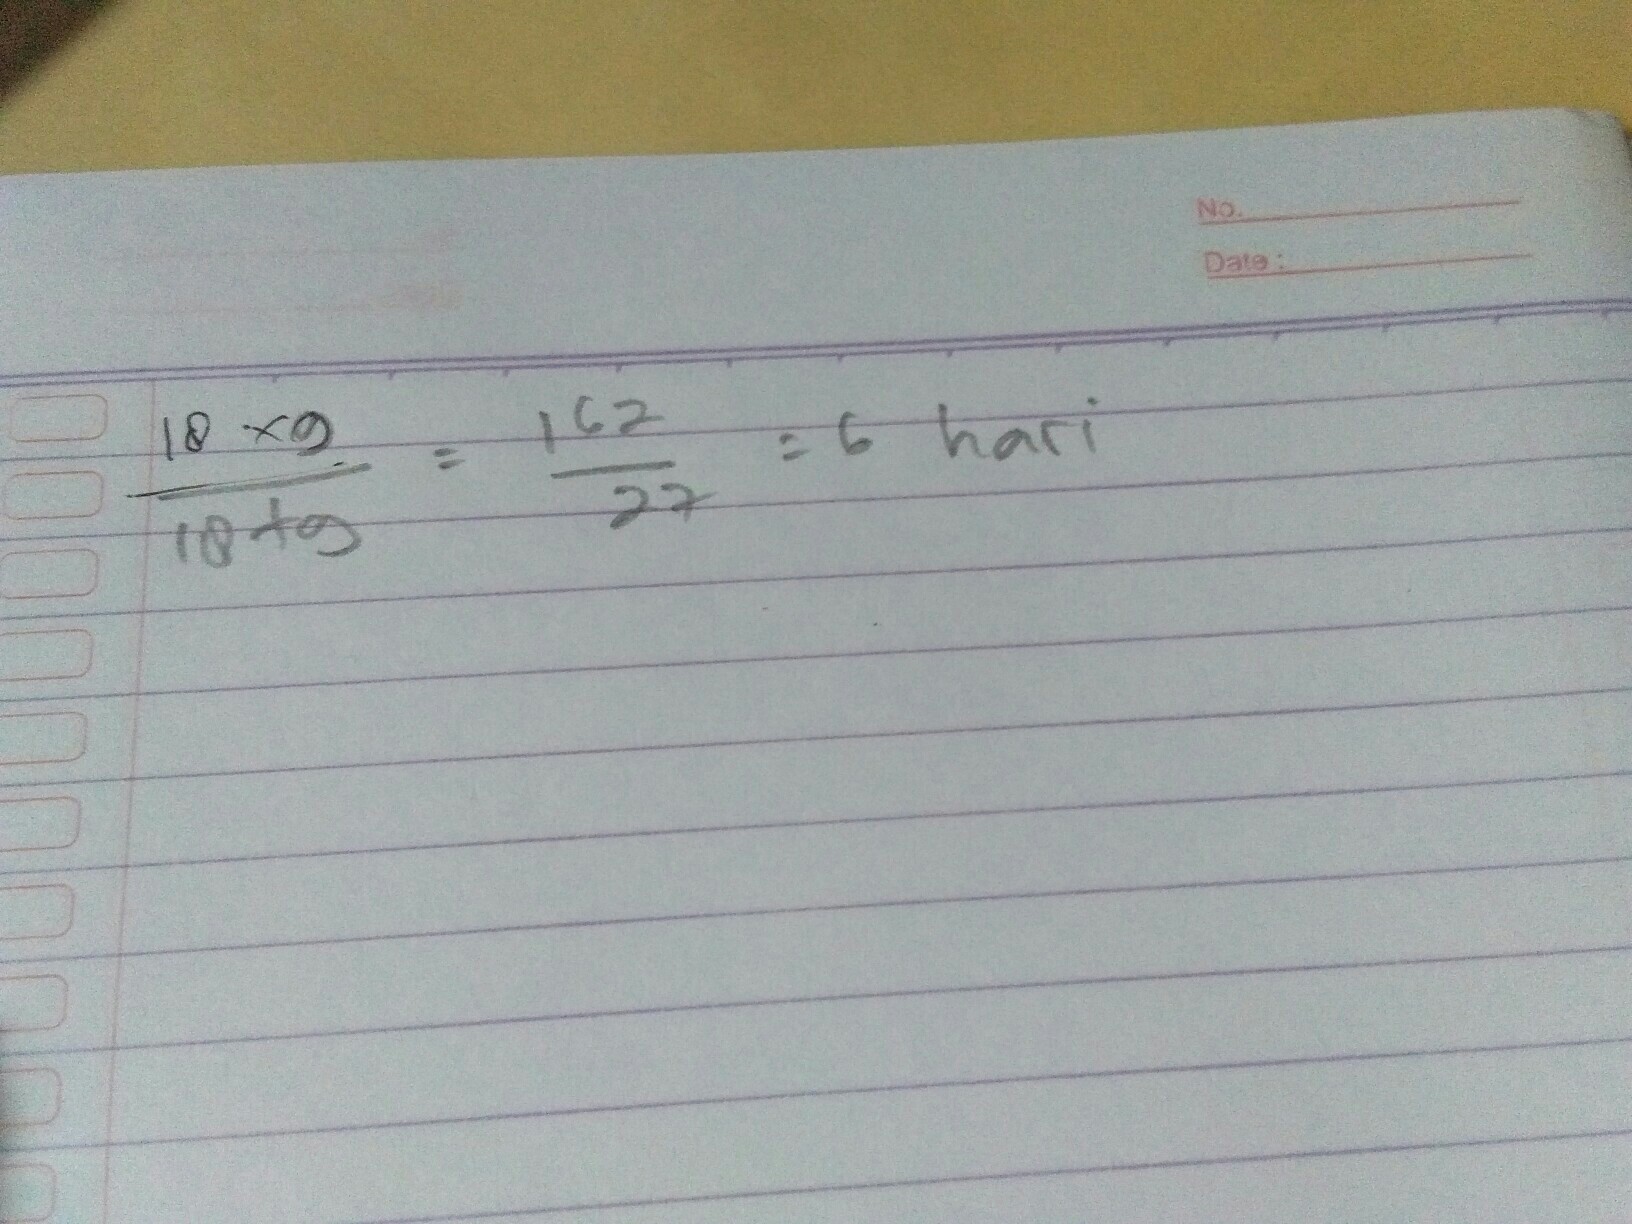 No.
Date:
18 x 9 / 18 + 9 = 162 / 27 = 6 hari